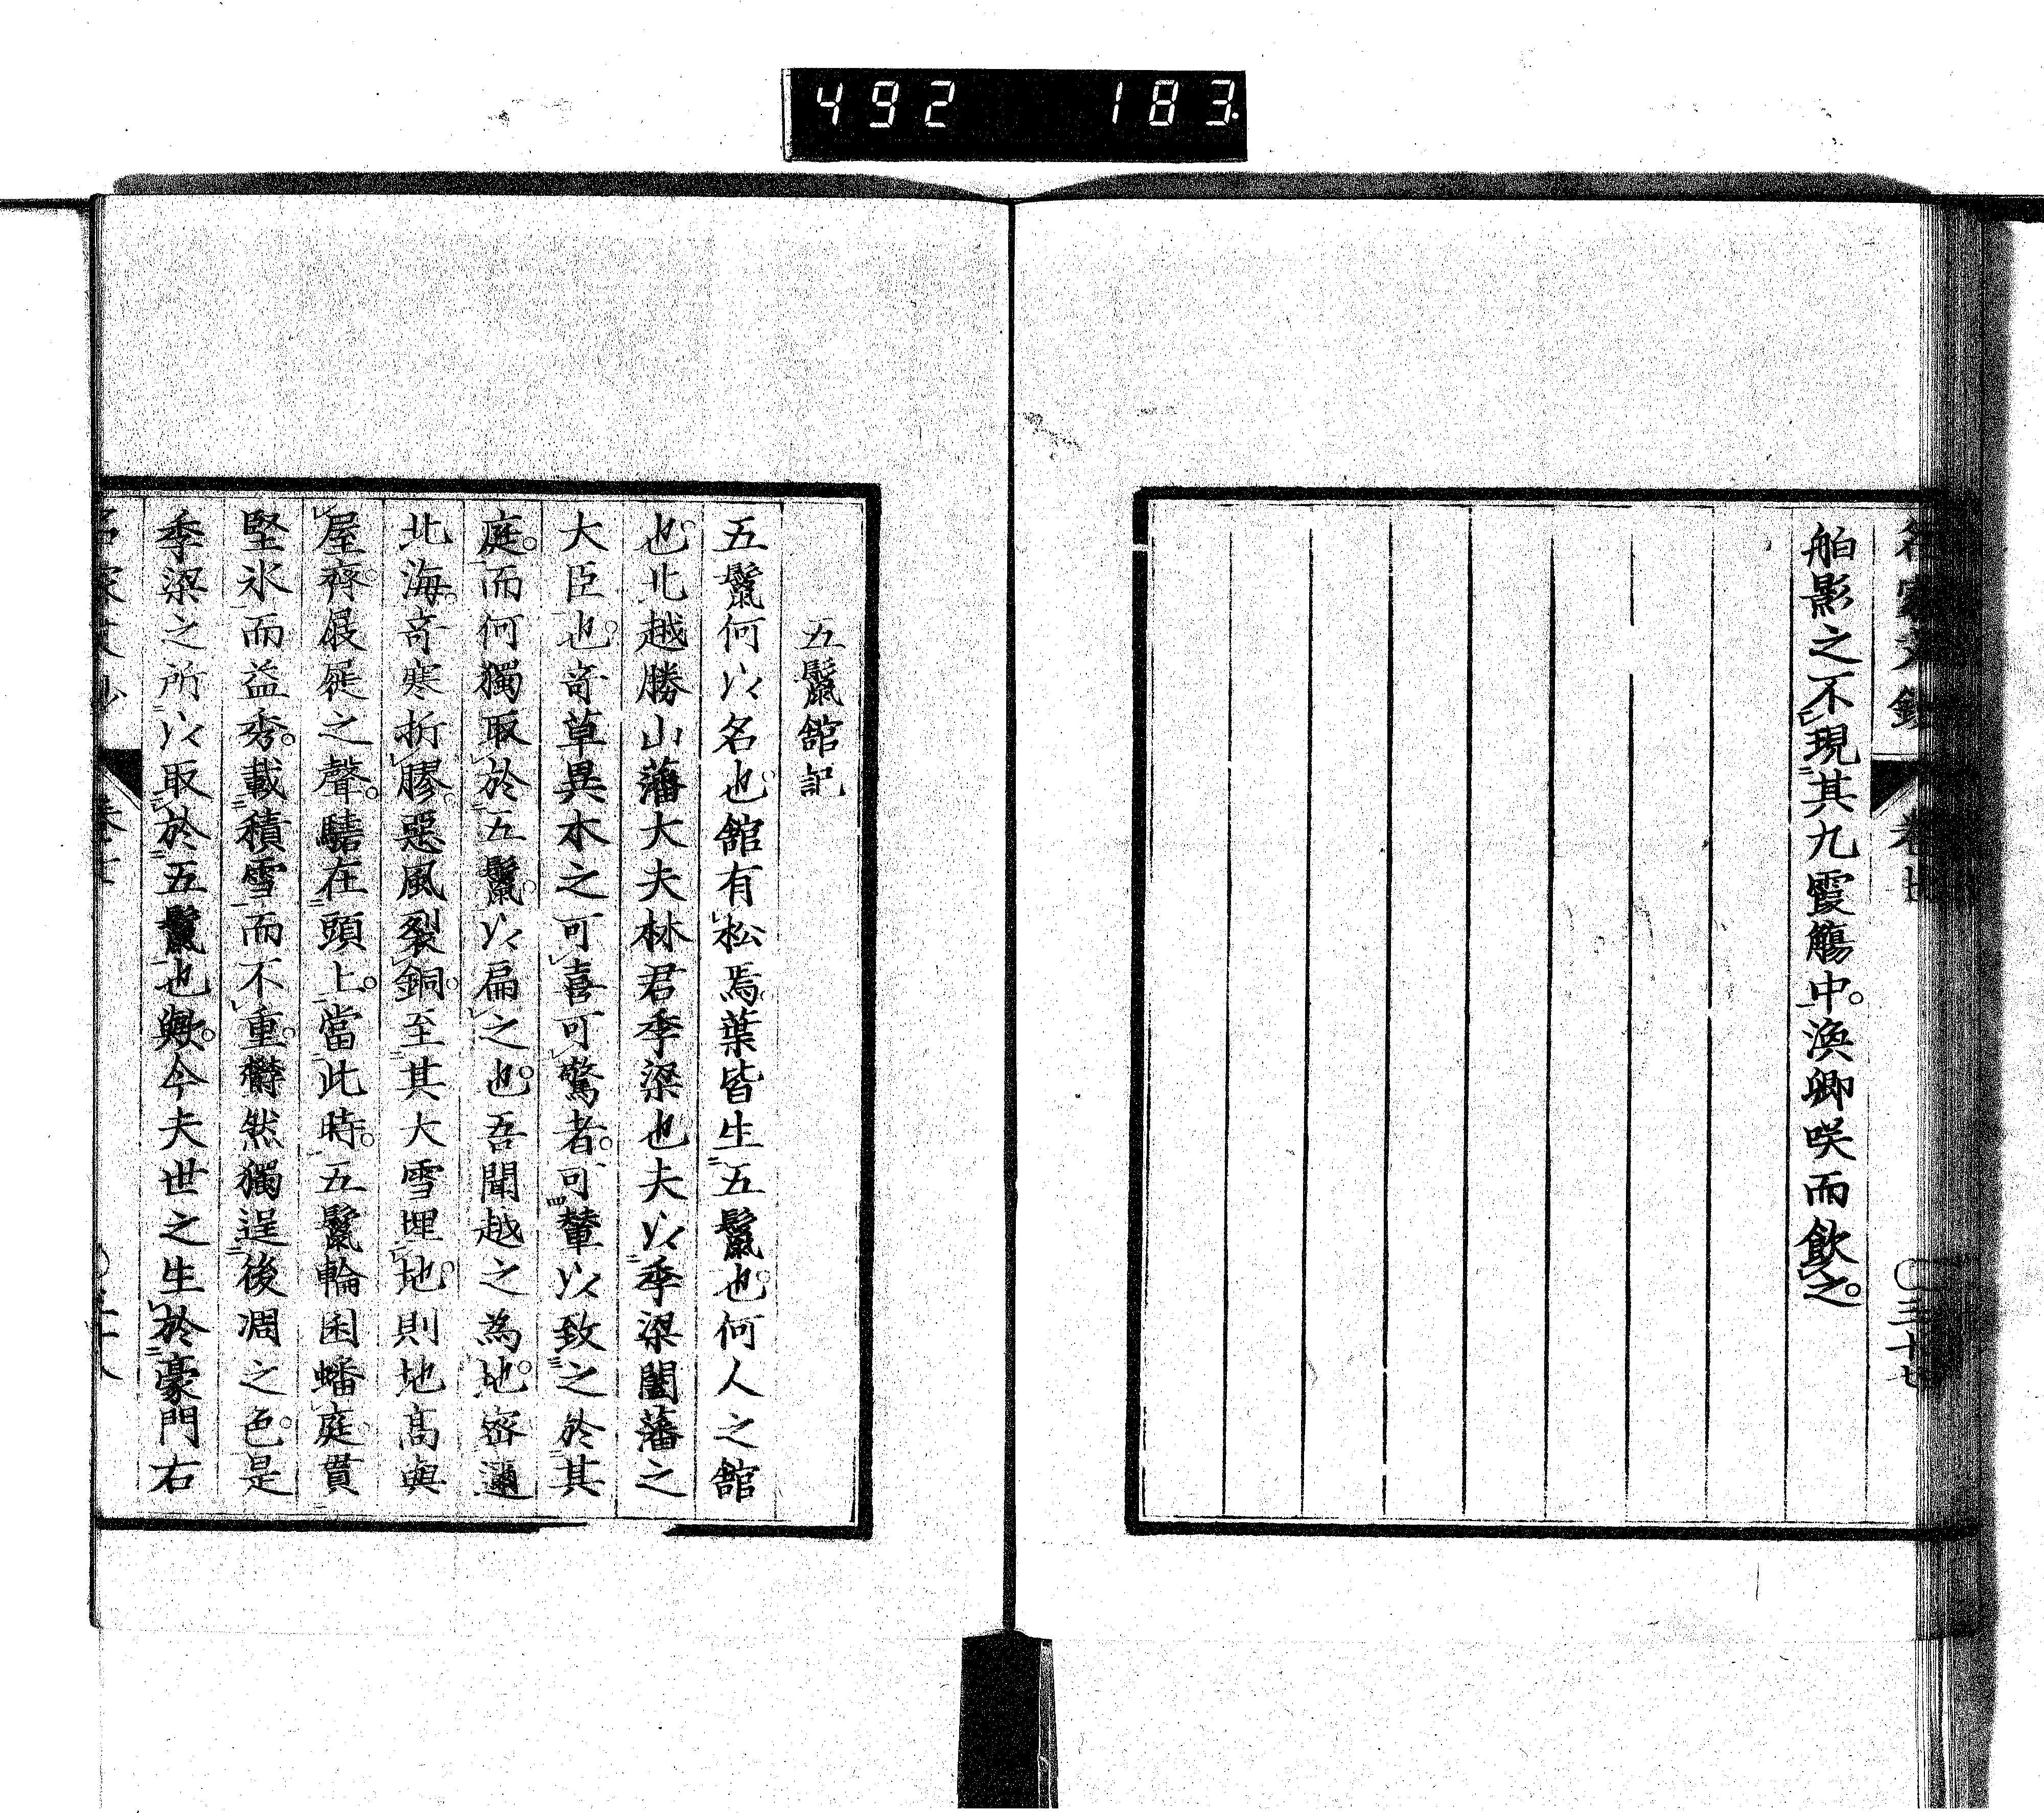 492 183
名家文鈔 卷七 三十七
舶影之不現其九霞觴中渙卿咲而飲之
五鬣館記
五鬣何以名也館有松焉葉皆生五鬣也何人之館
也北越勝山藩大夫林君季梁也夫以季梁闔藩之
大臣也奇草異木之可喜可驚者可輦以致之於其
庭而何獨取於五鬣以扁之也吾聞越之為地密邇
北海奇寒折膠惡風裂銅至其大雪埋地則地高與
屋齊屐屣之聲驕在頭上當此時五鬣輪囷蟠庭貫
堅氷而益秀載積雪而不重鬱然獨逞後凋之色是
季梁之所以取於五鬣也歟今夫世之生於豪門右